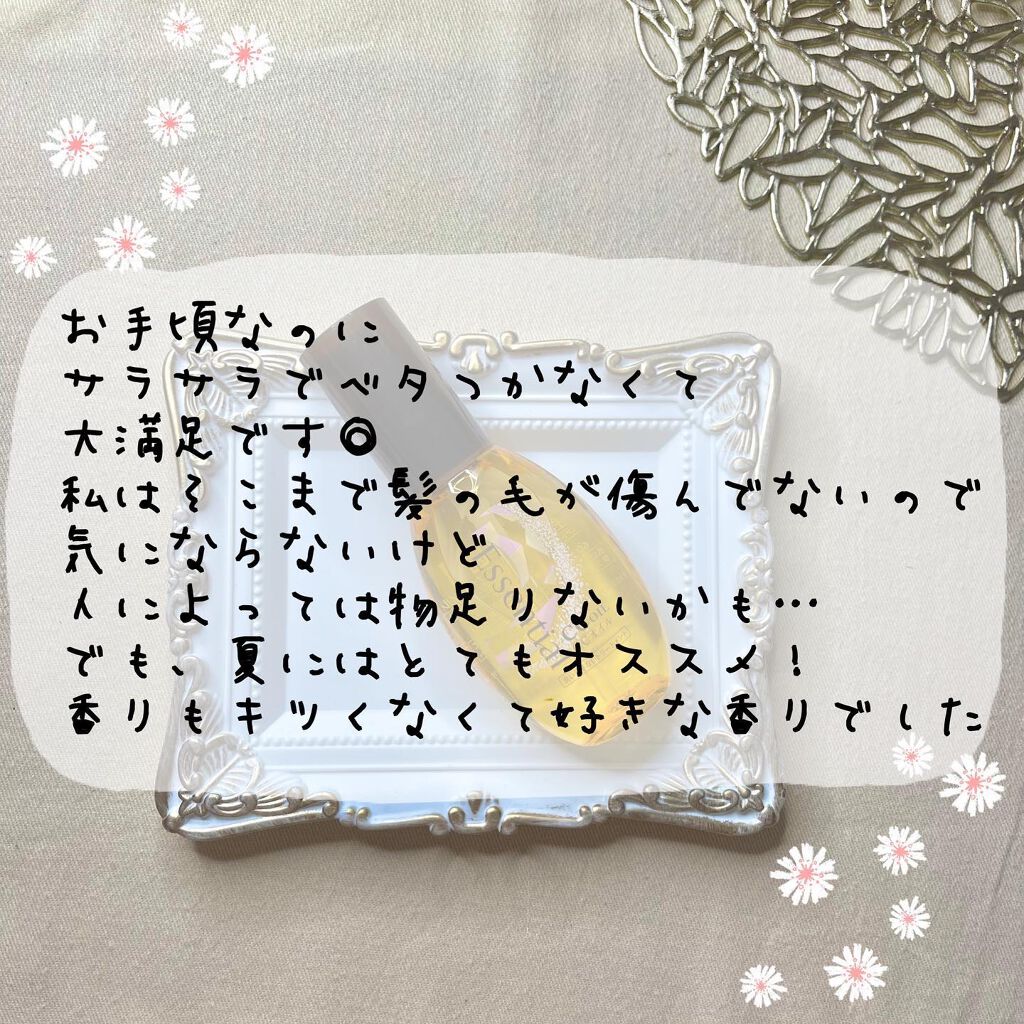 お手頃なのに
サラサラでベタつかなくて
大満足です◎
私はそこまで髪の毛が傷んでないので
気にならないけど
人によっては物足りないかも…
でも、夏にはとてもオススメ!
香りもキツくなくて好きな香りでした
Essential